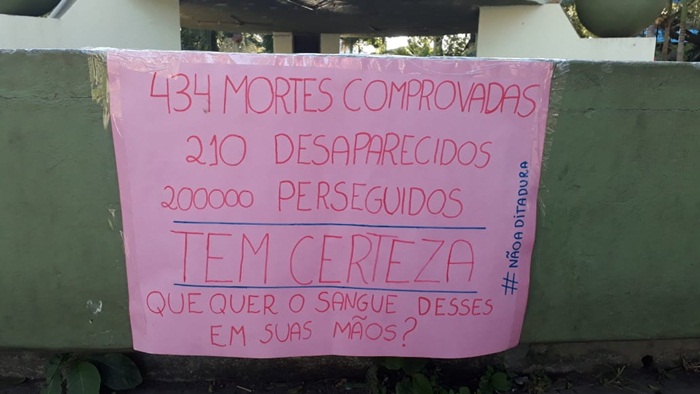 434 MORTES COMPROVADAS
210 DESAPARECIDOS
200000 PERSEGUIDOS
TEM CERTEZA
QUE QUER O SANGUE DESSES
EM SUAS MÃOS?
#NÃOADITADURA